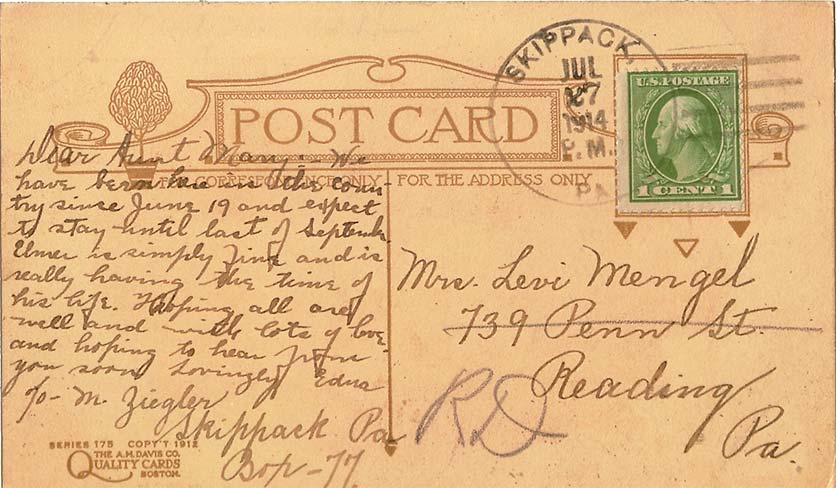 POST CARD
FOR CORRESPONDENCE ONLY
FOR THE ADDRESS ONLY
SKIPPACK,
JUL
27
1914
P.M.
PA
U.S. POSTAGE
1 CENT 1
Dear Aunt Mary:- We
have been here in the coun-
try since June 19 and expect
to stay until last of September
Elmer is simply fine and is
really having the time of
his life. Hoping all are
well and with lots of love
and hoping to hear from
you soon Lovingly Edna
c/o- M. Ziegler
Skippack Pa
Box-77
Mrs. Levi Mengel
739 Penn St.
Reading
Pa.
RD
SERIES 175 COPY'T 1912
THE A.M. DAVIS CO.
QUALITY CARDS
BOSTON.